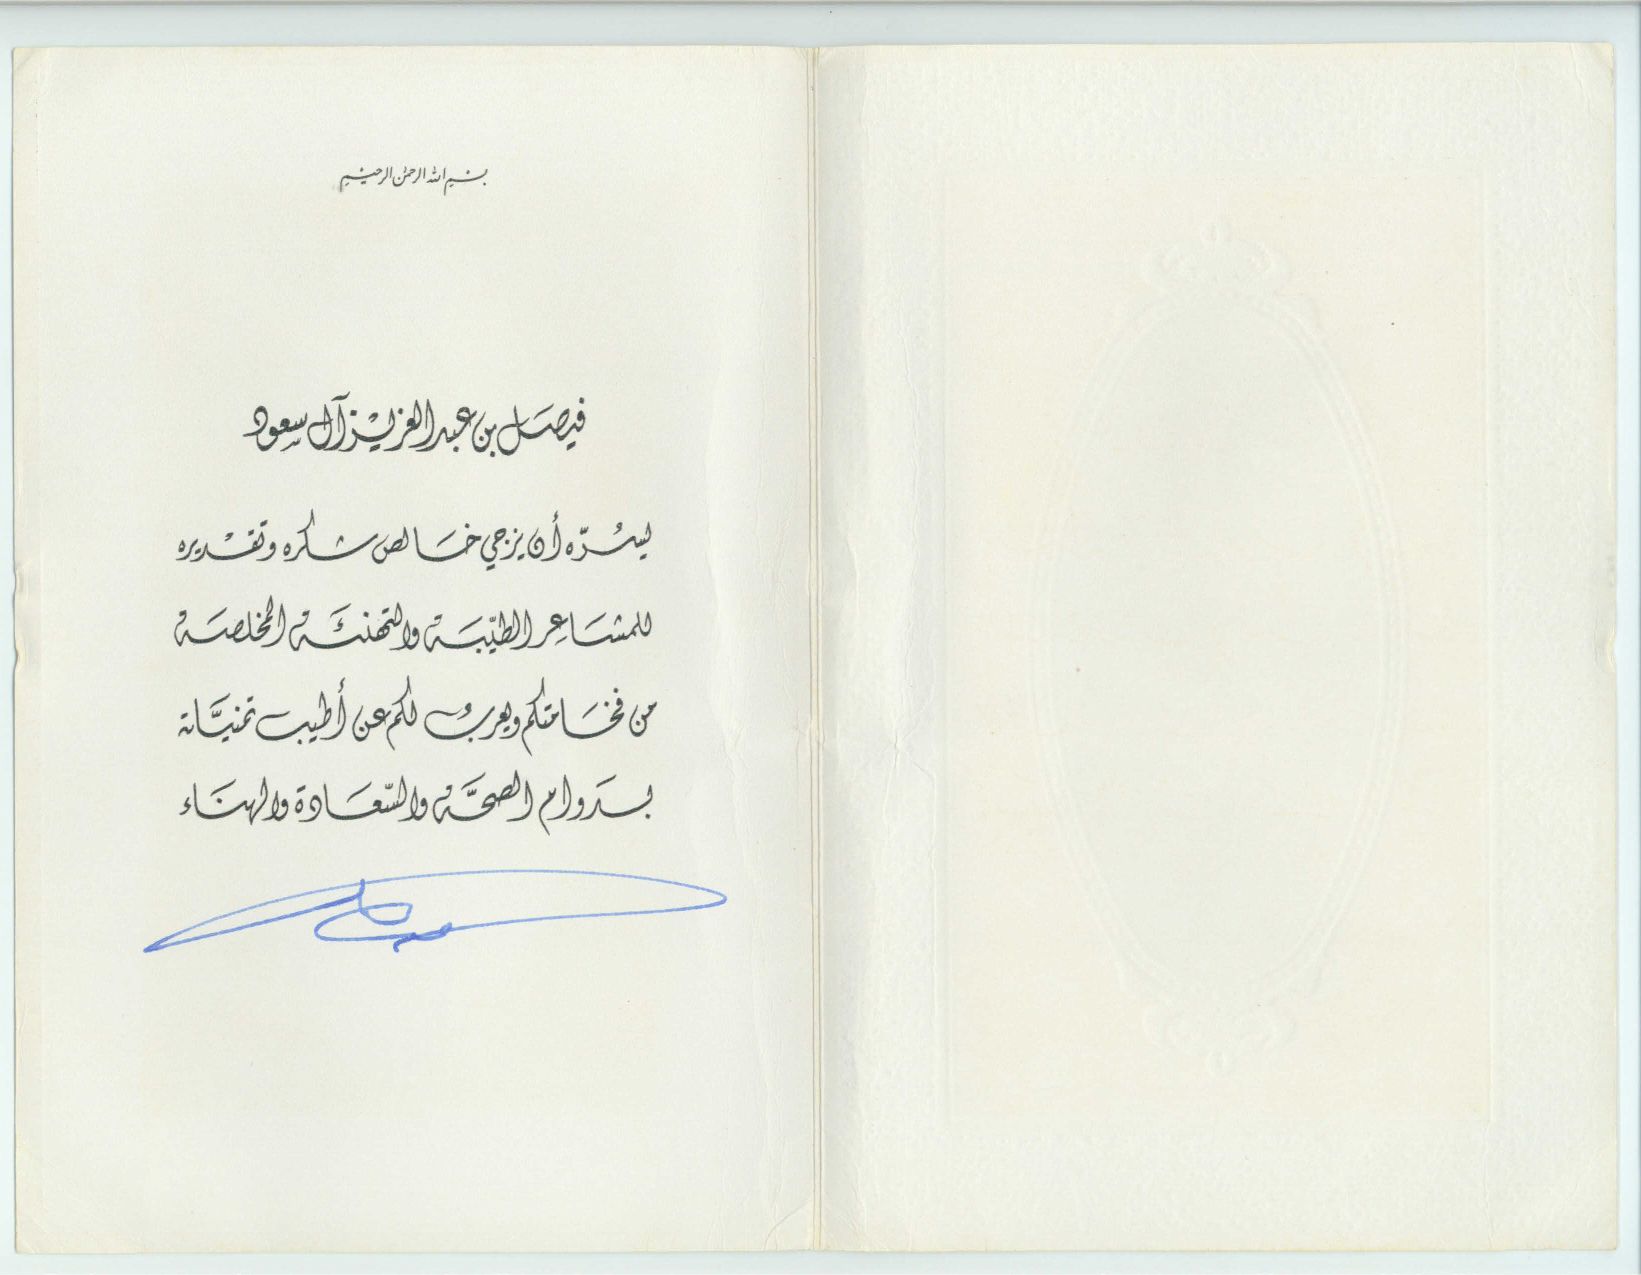 بسم الله الرحمن الرحيم
فيصل بن عبد العزيز آل سعود
ليسُرّه أن يزجي خَالص شكره وتقديره
للمشَاعِر الطيّبَة والتهنئَة المخلصَة
من فخَامتكم ويعربُ لكم عن أطيب تمنيَّاته
بدَوام الصحَّة والسّعَادة والهنَاء